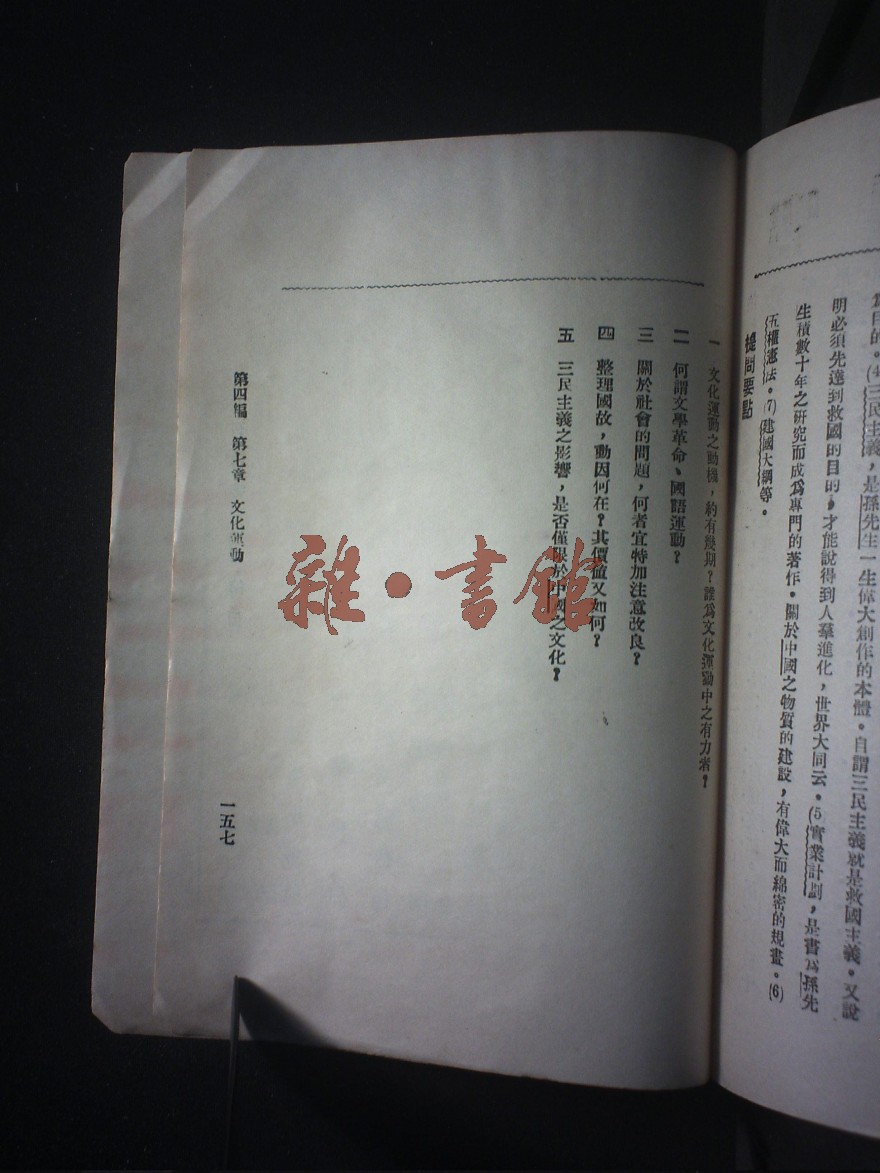 爲目的。(4)三民主義，是孫先生一生偉大創作的本體。自謂三民主義就是救國主義。又說
明必須先達到救國的目的，才能說得到人羣進化，世界大同云。(5)實業計劃，是書爲孫先
生積數十年之研究而成爲專門的著作。關於中國之物質的建設，有偉大而綿密的規畫。(6)
五權憲法。(7)建國大綱等。
提問要點
一　文化運動之動機，約有幾期？誰爲文化運動中之有力者？
二　何謂文學革命、國語運動？
三　關於社會的問題，何者宜特加注意改良？
四　整理國故，動因何在？其價值又如何？
五　三民主義之影響，是否僅限於中國之文化？
第四編　第七章　文化運動
一五七
雜·書館